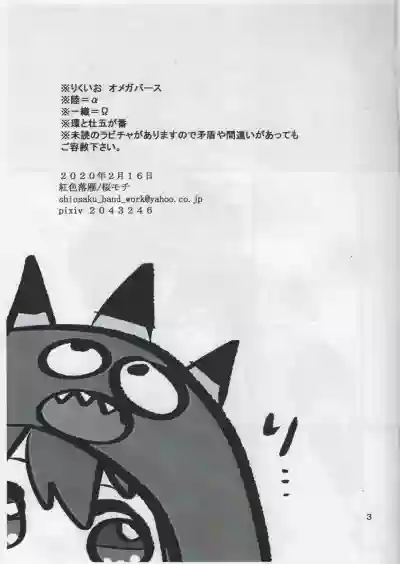 ※りくいお オメガバース
※陸＝α
※一織＝Ω
※環と壮五が番
※未読のラビチャがありますので矛盾や間違いがあっても
ご容赦下さい。
2020年2月16日
紅色落雁/桜モチ
shiosaku_hand_work@yahoo.co.jp
pixiv 2043246
り
3